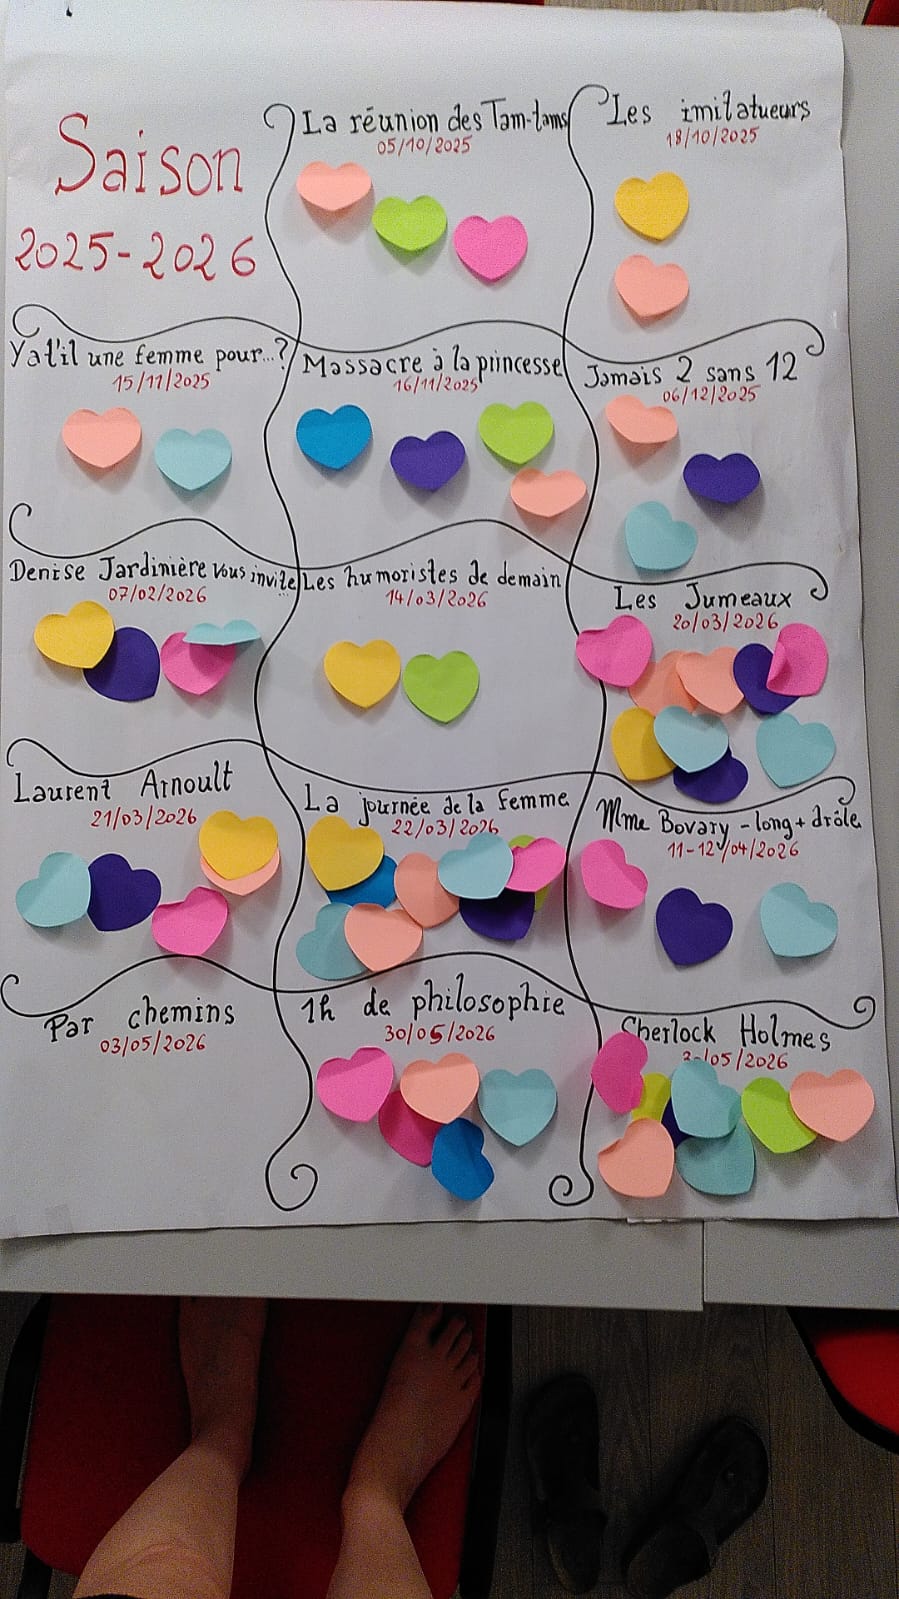 Saison
2025-2026
La réunion des Tam-tams
05/10/2025
Les imitatueurs
18/10/2025
Y at'il une femme pour...?
15/11/2025
Massacre à la princesse
16/11/2025
Jamais 2 sans 12
06/12/2025
Denise Jardinière vous invite
07/02/2026
Les humoristes de demain
14/03/2026
Les Jumeaux
20/03/2026
Laurent Arnoult
21/03/2026
La journée de la femme
22/03/2026
Mme Bovary - long + drôle
11-12/04/2026
Par chemins
03/05/2026
1h de philosophie
30/05/2026
Cherlock Holmes
/05/2026